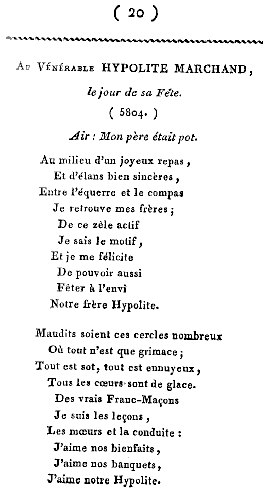 ( 20 )
Au Vénérable HYPOLITE MARCHAND,
le jour de sa Fête.
( 5804. )
Air : Mon père était pot.
Au milieu d'un joyeux repas,
Et d'élans bien sincères,
Entre l'équerre et le compas
Je retrouve mes frères ;
De ce zèle actif
Je sais le motif,
Et je me félicite
De pouvoir aussi
Fêter à l'envi
Notre frère Hypolite.
Maudits soient ces cercles nombreux
Où tout n'est que grimace ;
Tout est sot, tout est ennuyeux,
Tous les cœurs sont de glace.
Des vrais Franc-Maçons
Je suis les leçons,
Les mœurs et la conduite :
J'aime nos bienfaits,
J'aime nos banquets,
J'aime notre Hypolite.